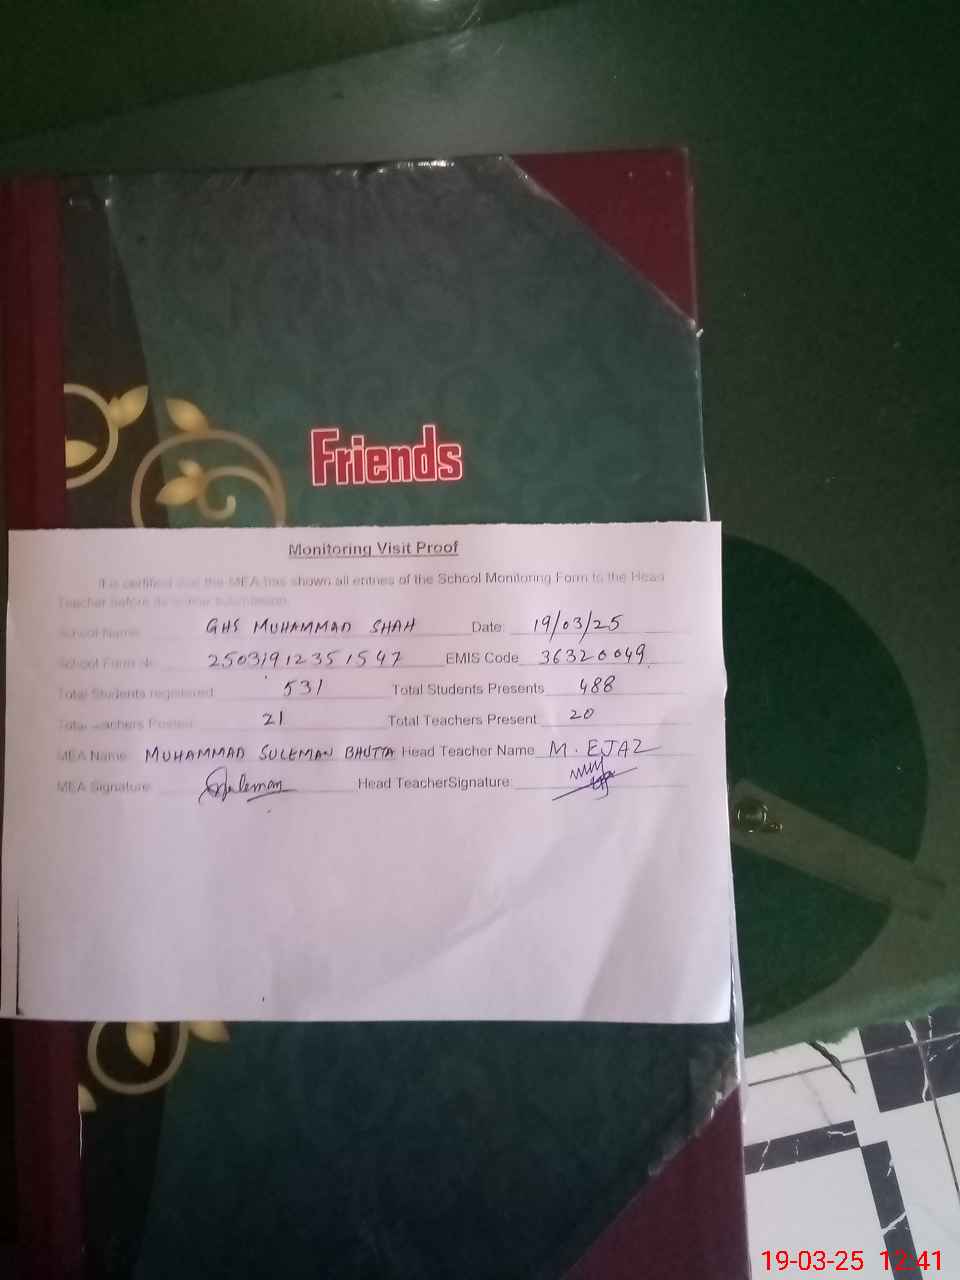 Friends
Monitoring Visit Proof
It is certified that the MEA has shown all entries of the School Monitoring Form to the Head
Teacher before its online submission.
School Name: GHS MUHAMMAD SHAH Date: 19/03/25
School Form No 25031912351547 EMIS Code 36320049
Total Students registered: 531 Total Students Presents 488
Total Teachers Posted: 21 Total Teachers Present 20
MEA Name: MUHAMMAD SULEMAN BHUTTA Head Teacher Name M. EJAZ
MEA Signature: Suleman Head TeacherSignature:
19-03-25 12:41